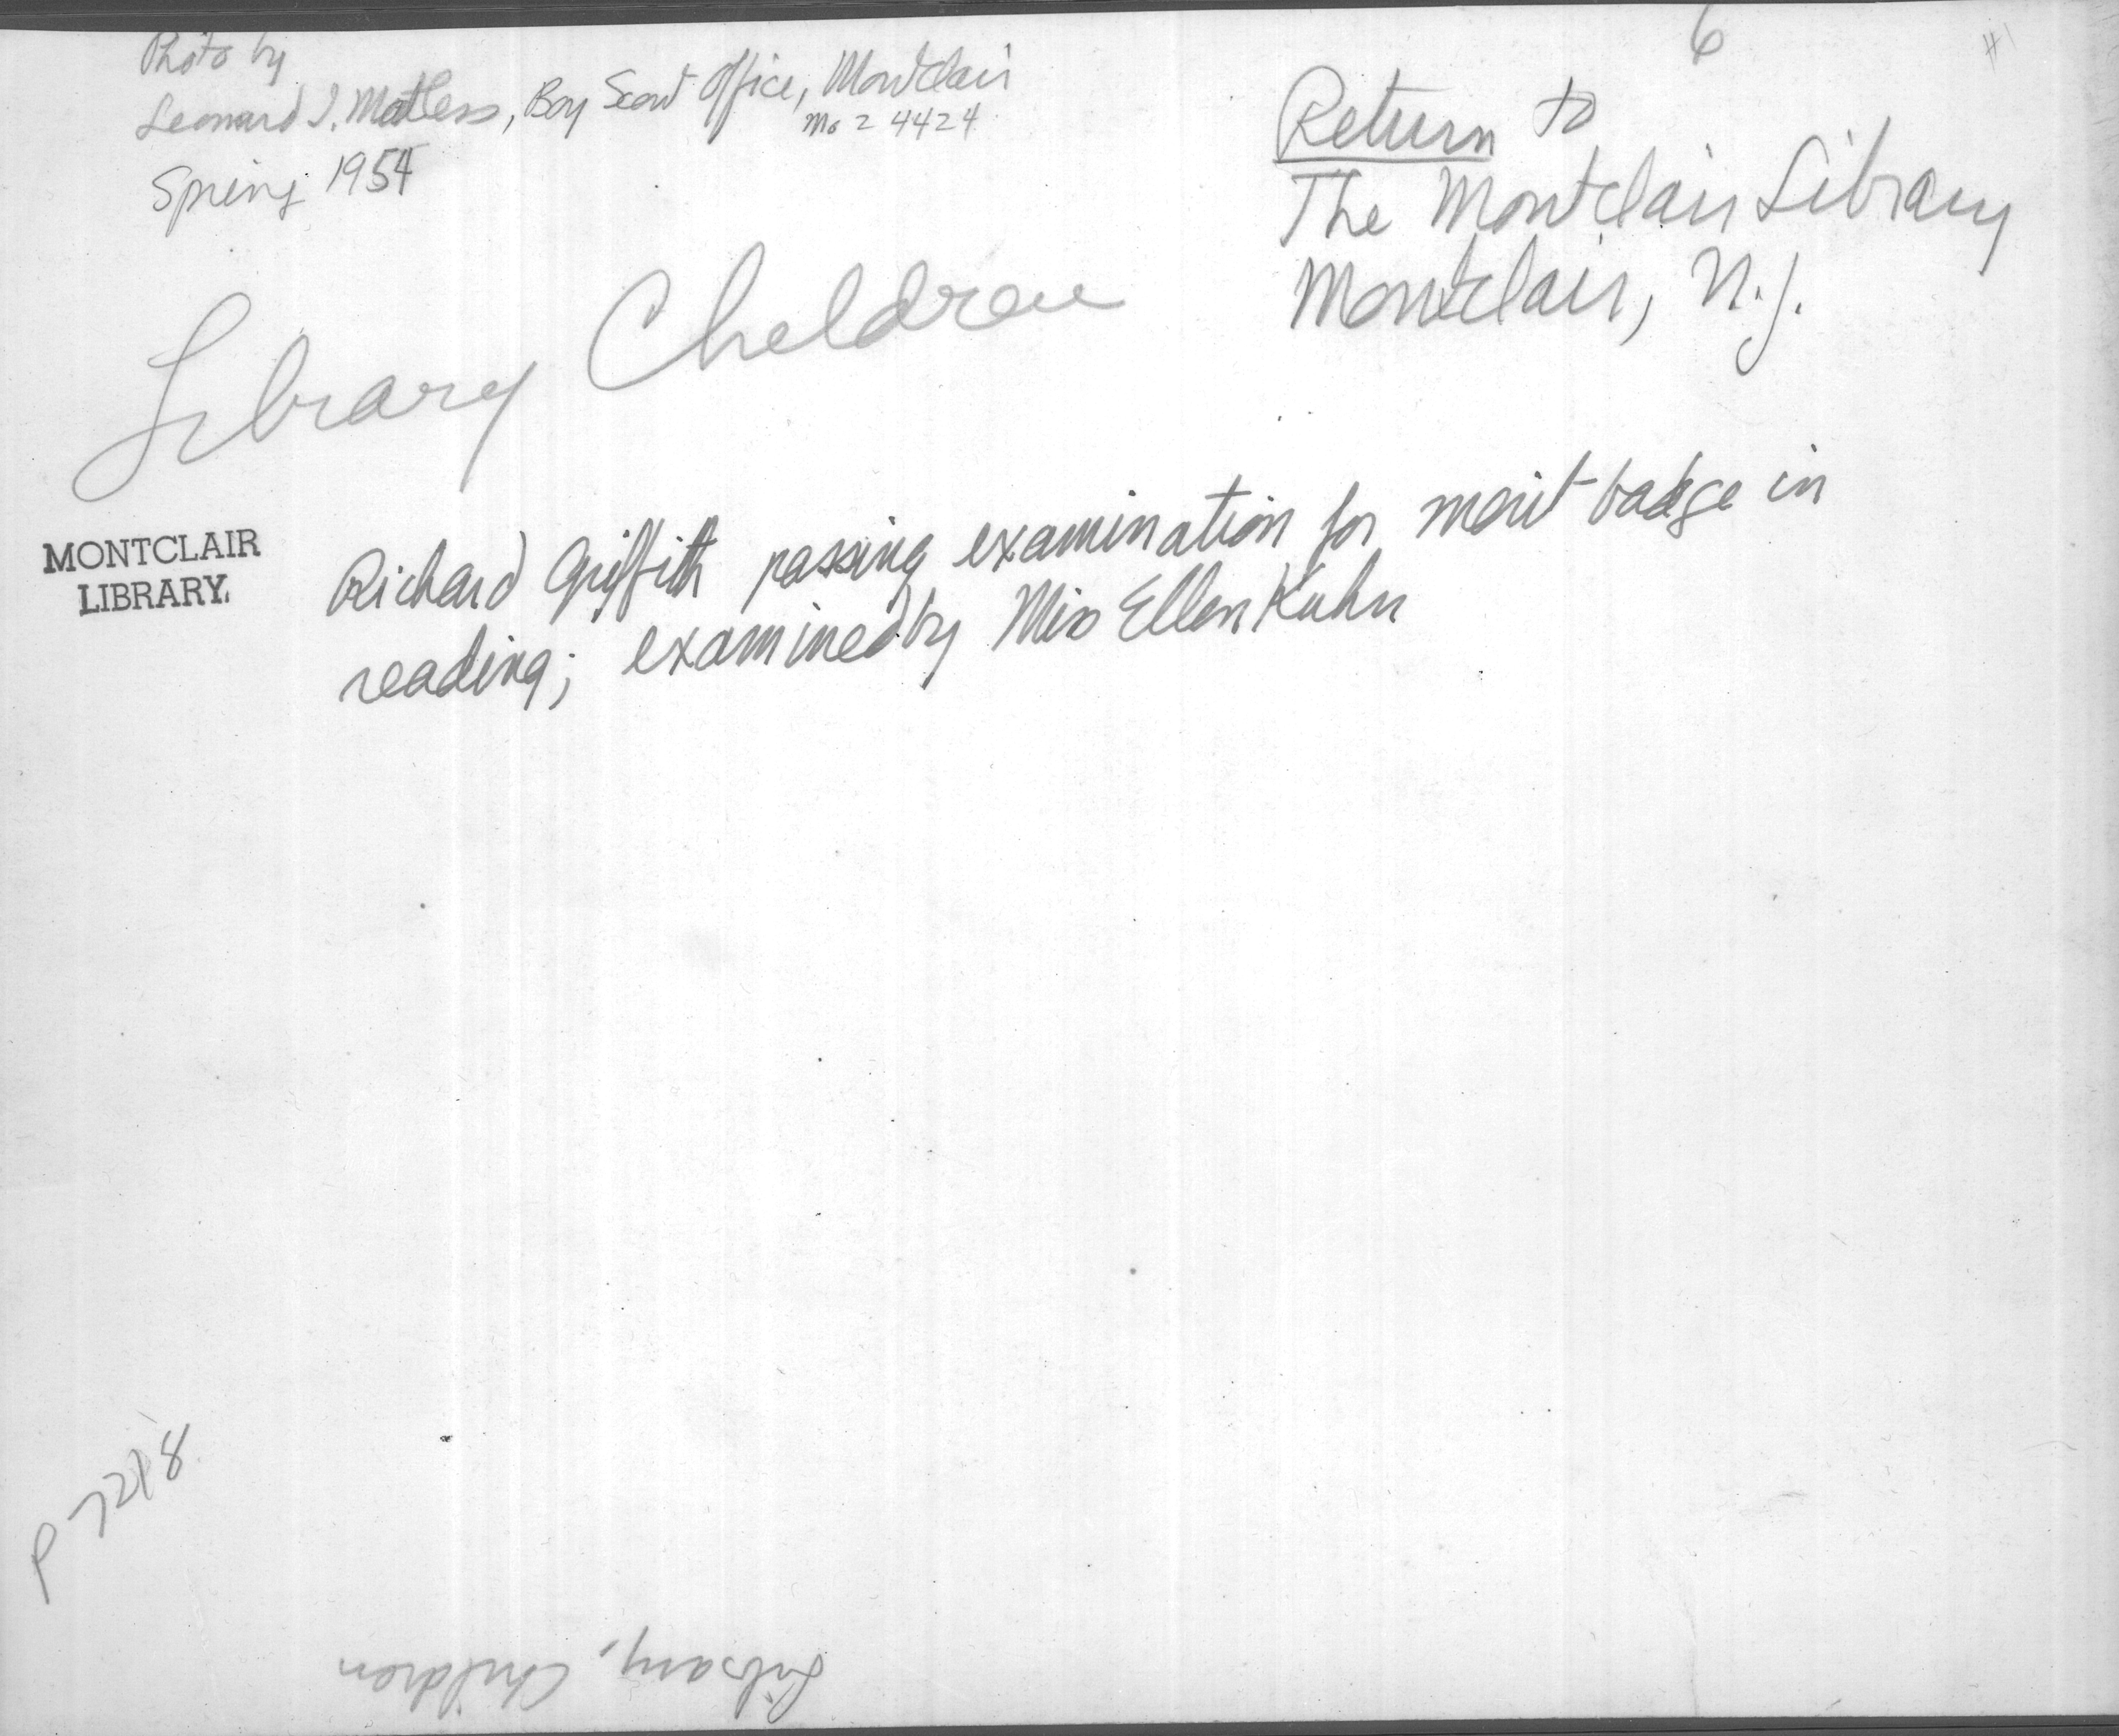 Photo by
Leonard I. Matless, Boy Scout Office, Montclair
Mo 2 4424
Spring 1954
6
#1
Return to
The Montclair Library
Montclair, N.J.
Library Children
MONTCLAIR
LIBRARY
Richard Griffith passing examination for merit badge in
reading; examined by Miss Ellen Kuhn
P 7218
Library, Children